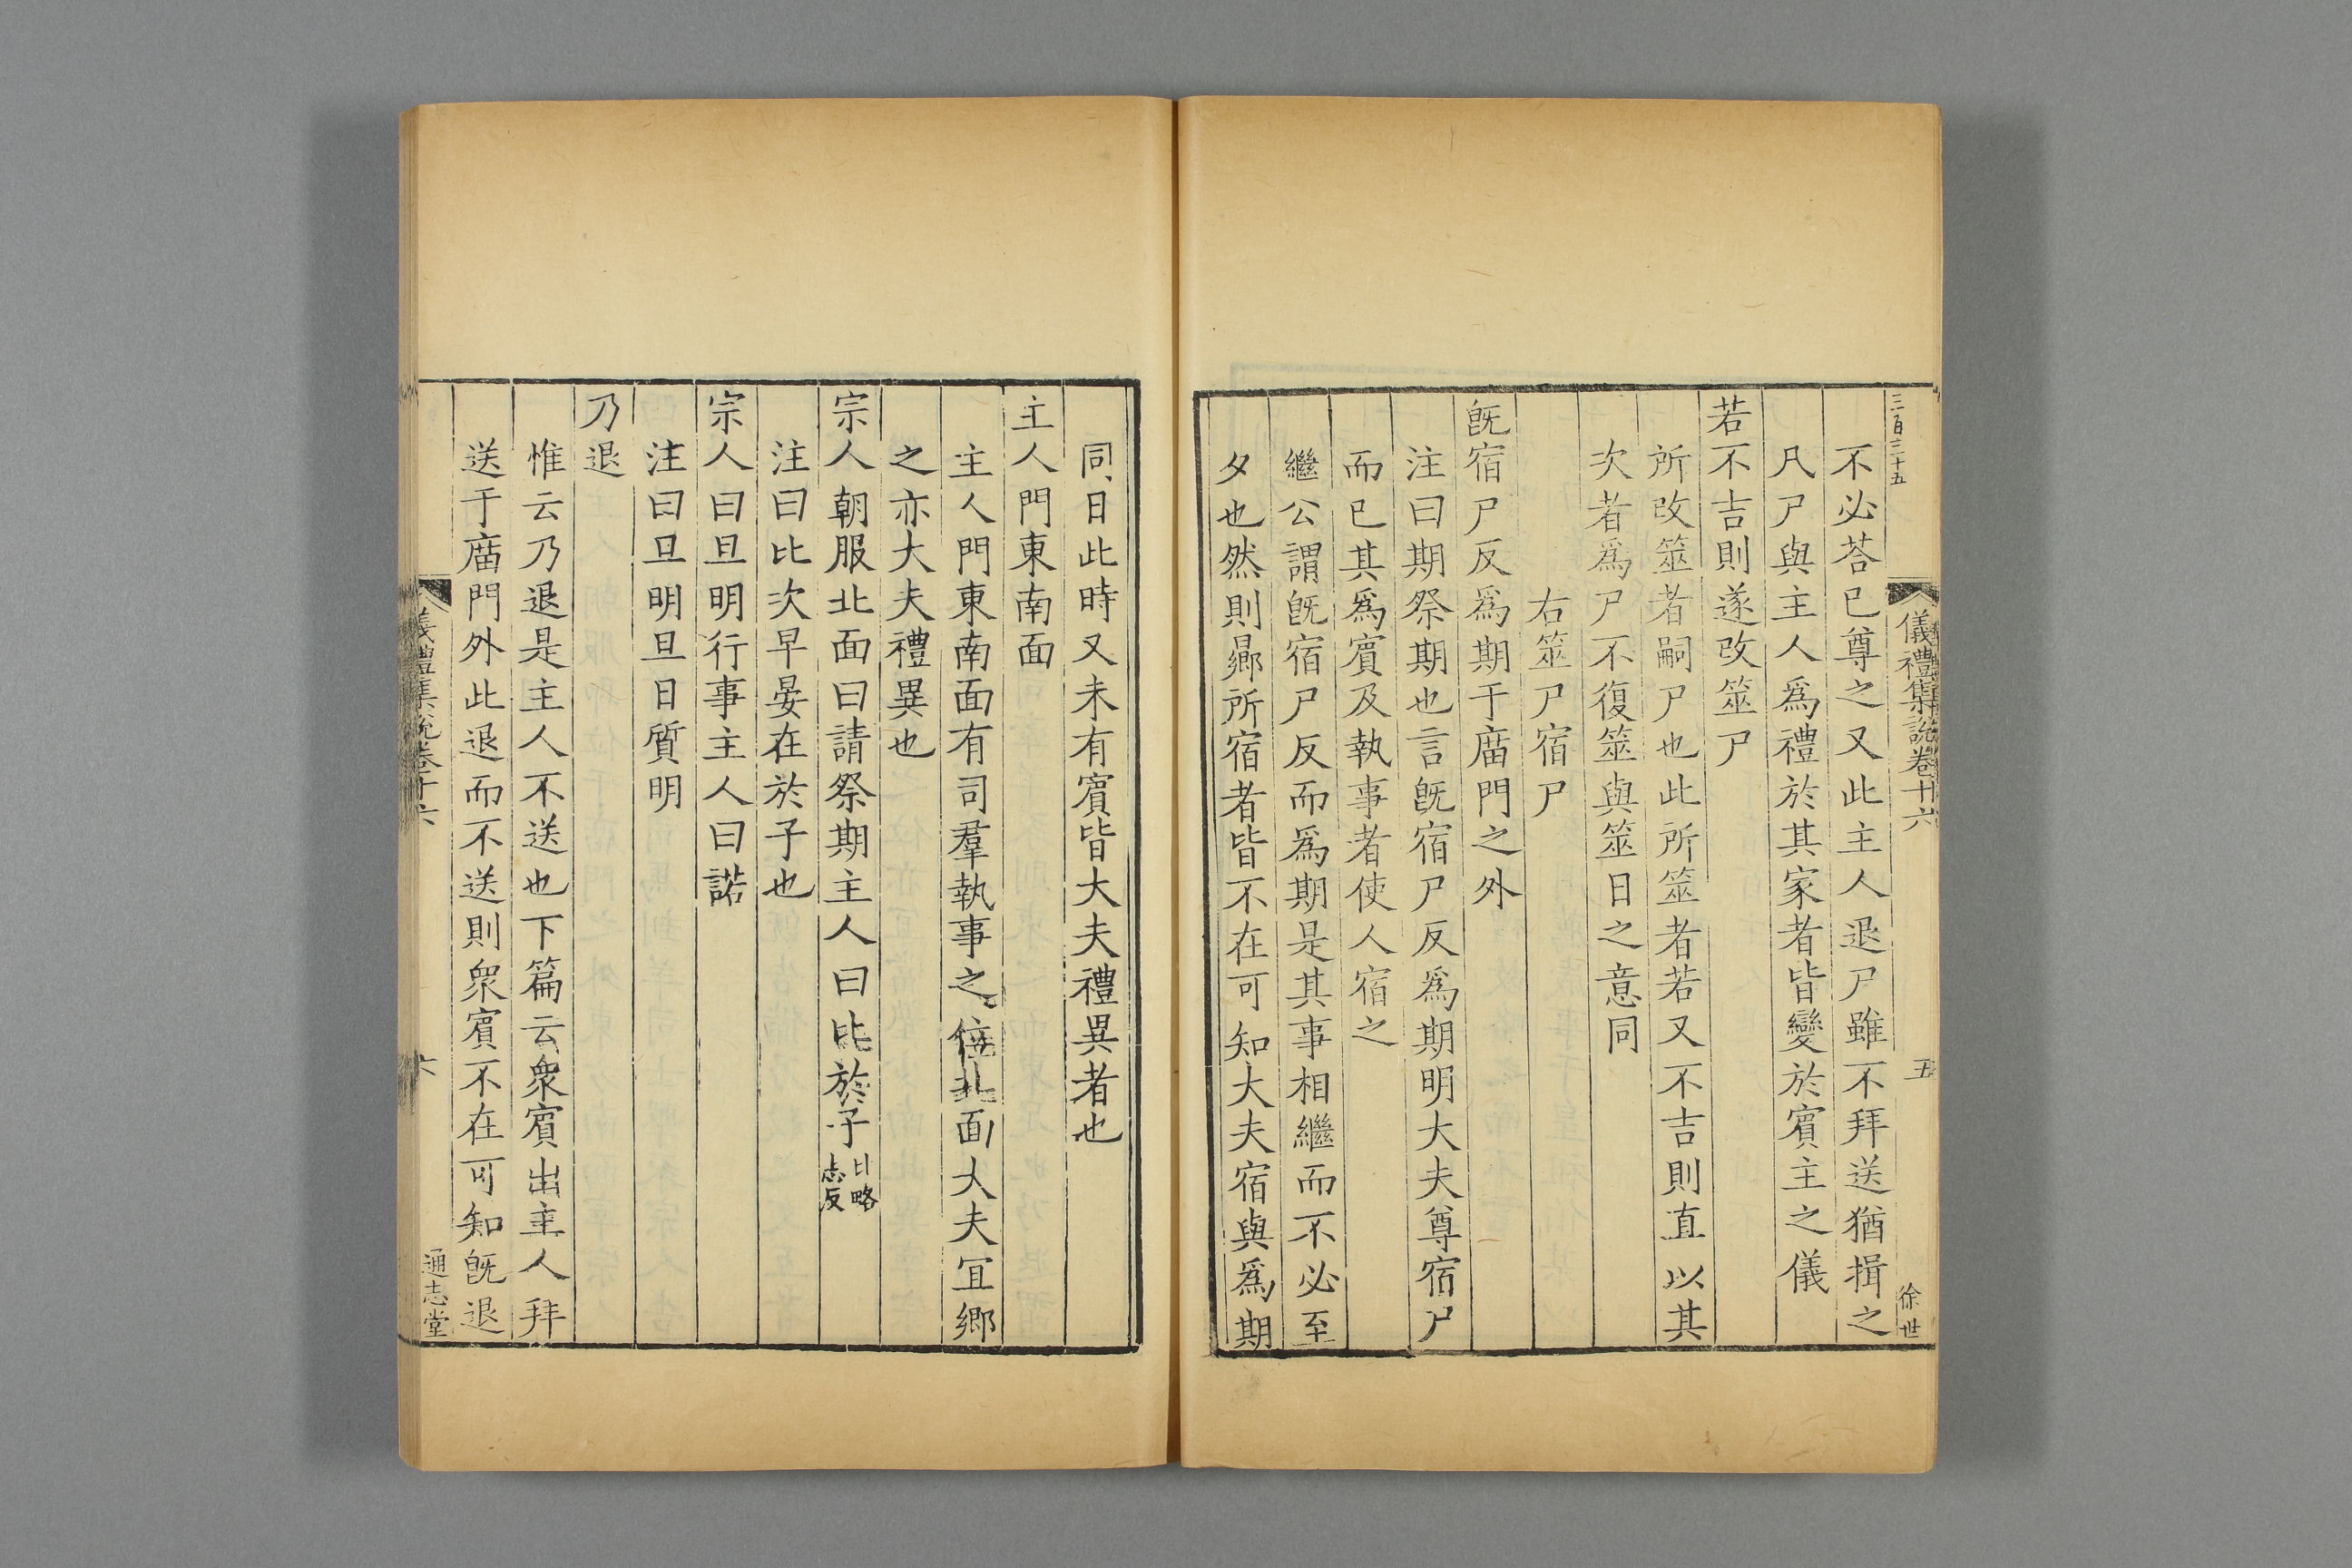 三百三十五
儀禮集說卷十六
五
徐世
不必荅已尊之又此主人退尸雖不拜送猶揖之
凡尸與主人爲禮於其家者皆變於賓主之儀
若不吉則遂改筮尸
所改筮者嗣尸也此所筮者若又不吉則直以其
次者爲尸不復筮與筮日之意同
右筮尸宿尸
旣宿尸反爲期于廟門之外
注曰期祭期也言旣宿尸反爲期明大夫尊宿尸
而已其爲賓及執事者使人宿之
繼公謂旣宿尸反而爲期是其事相繼而不必至
夕也然則曏所宿者皆不在可知大夫宿與爲期
同日此時又未有賓皆大夫禮異者也
主人門東南面
主人門東南面有司羣執事之位北面大夫冝鄉
之亦大夫禮異也
宗人朝服北面曰請祭期主人曰比於子比略志反
注曰比次早晏在於子也
宗人曰旦明行事主人曰諾
注曰旦明旦日質明
乃退
惟云乃退是主人不送也下篇云衆賓出主人拜
送于廟門外此退而不送則衆賓不在可知旣退
儀禮集說卷十六
六
通志堂